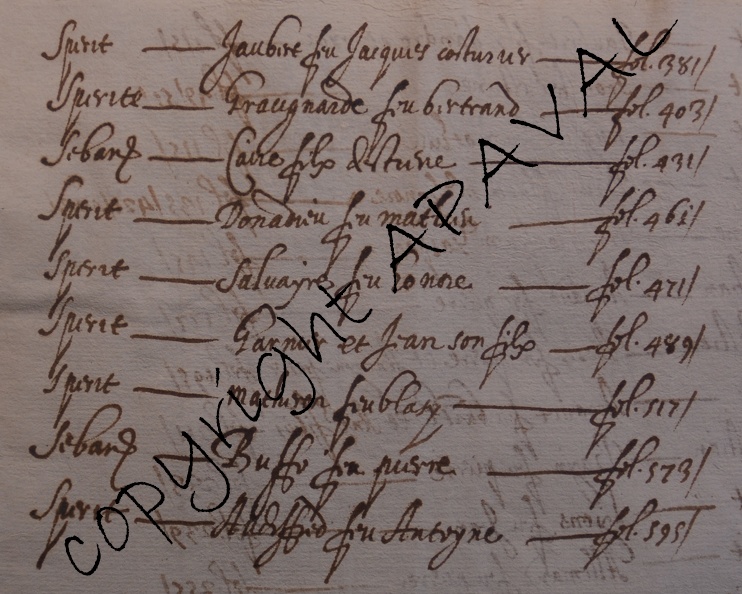 Sperit Jaubert feu Jacques costurier fol. 381/
Sperite Graugnarde feu bertrand fol. 403/
Sebard Caire filx d'esturie fol. 431/
Sperit Donadieu feu mathieu fol. 461/
Sperit Salvayre feu honore fol. 471/
Sperit Garnier et Jean son filx fol. 489/
Sperit matheron feu blaise fol. 517/
Sebard Buffe feu pierre fol. 573/
Sperit feu Antoyne fol. 595/
copyright APAVAL